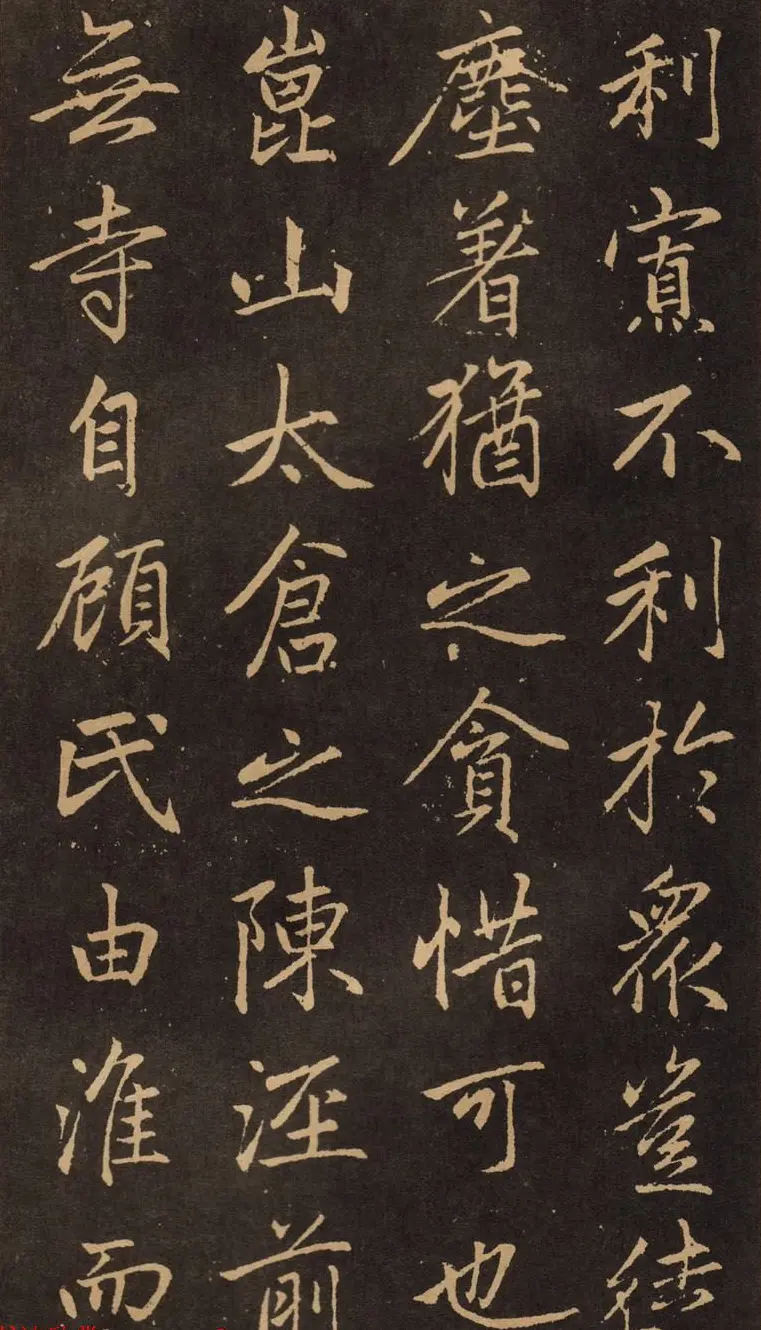 利寡不利於眾豈徒
塵着猶之貪惜可也
崑山太倉之陳涇前
無寺自顧氏由淮而